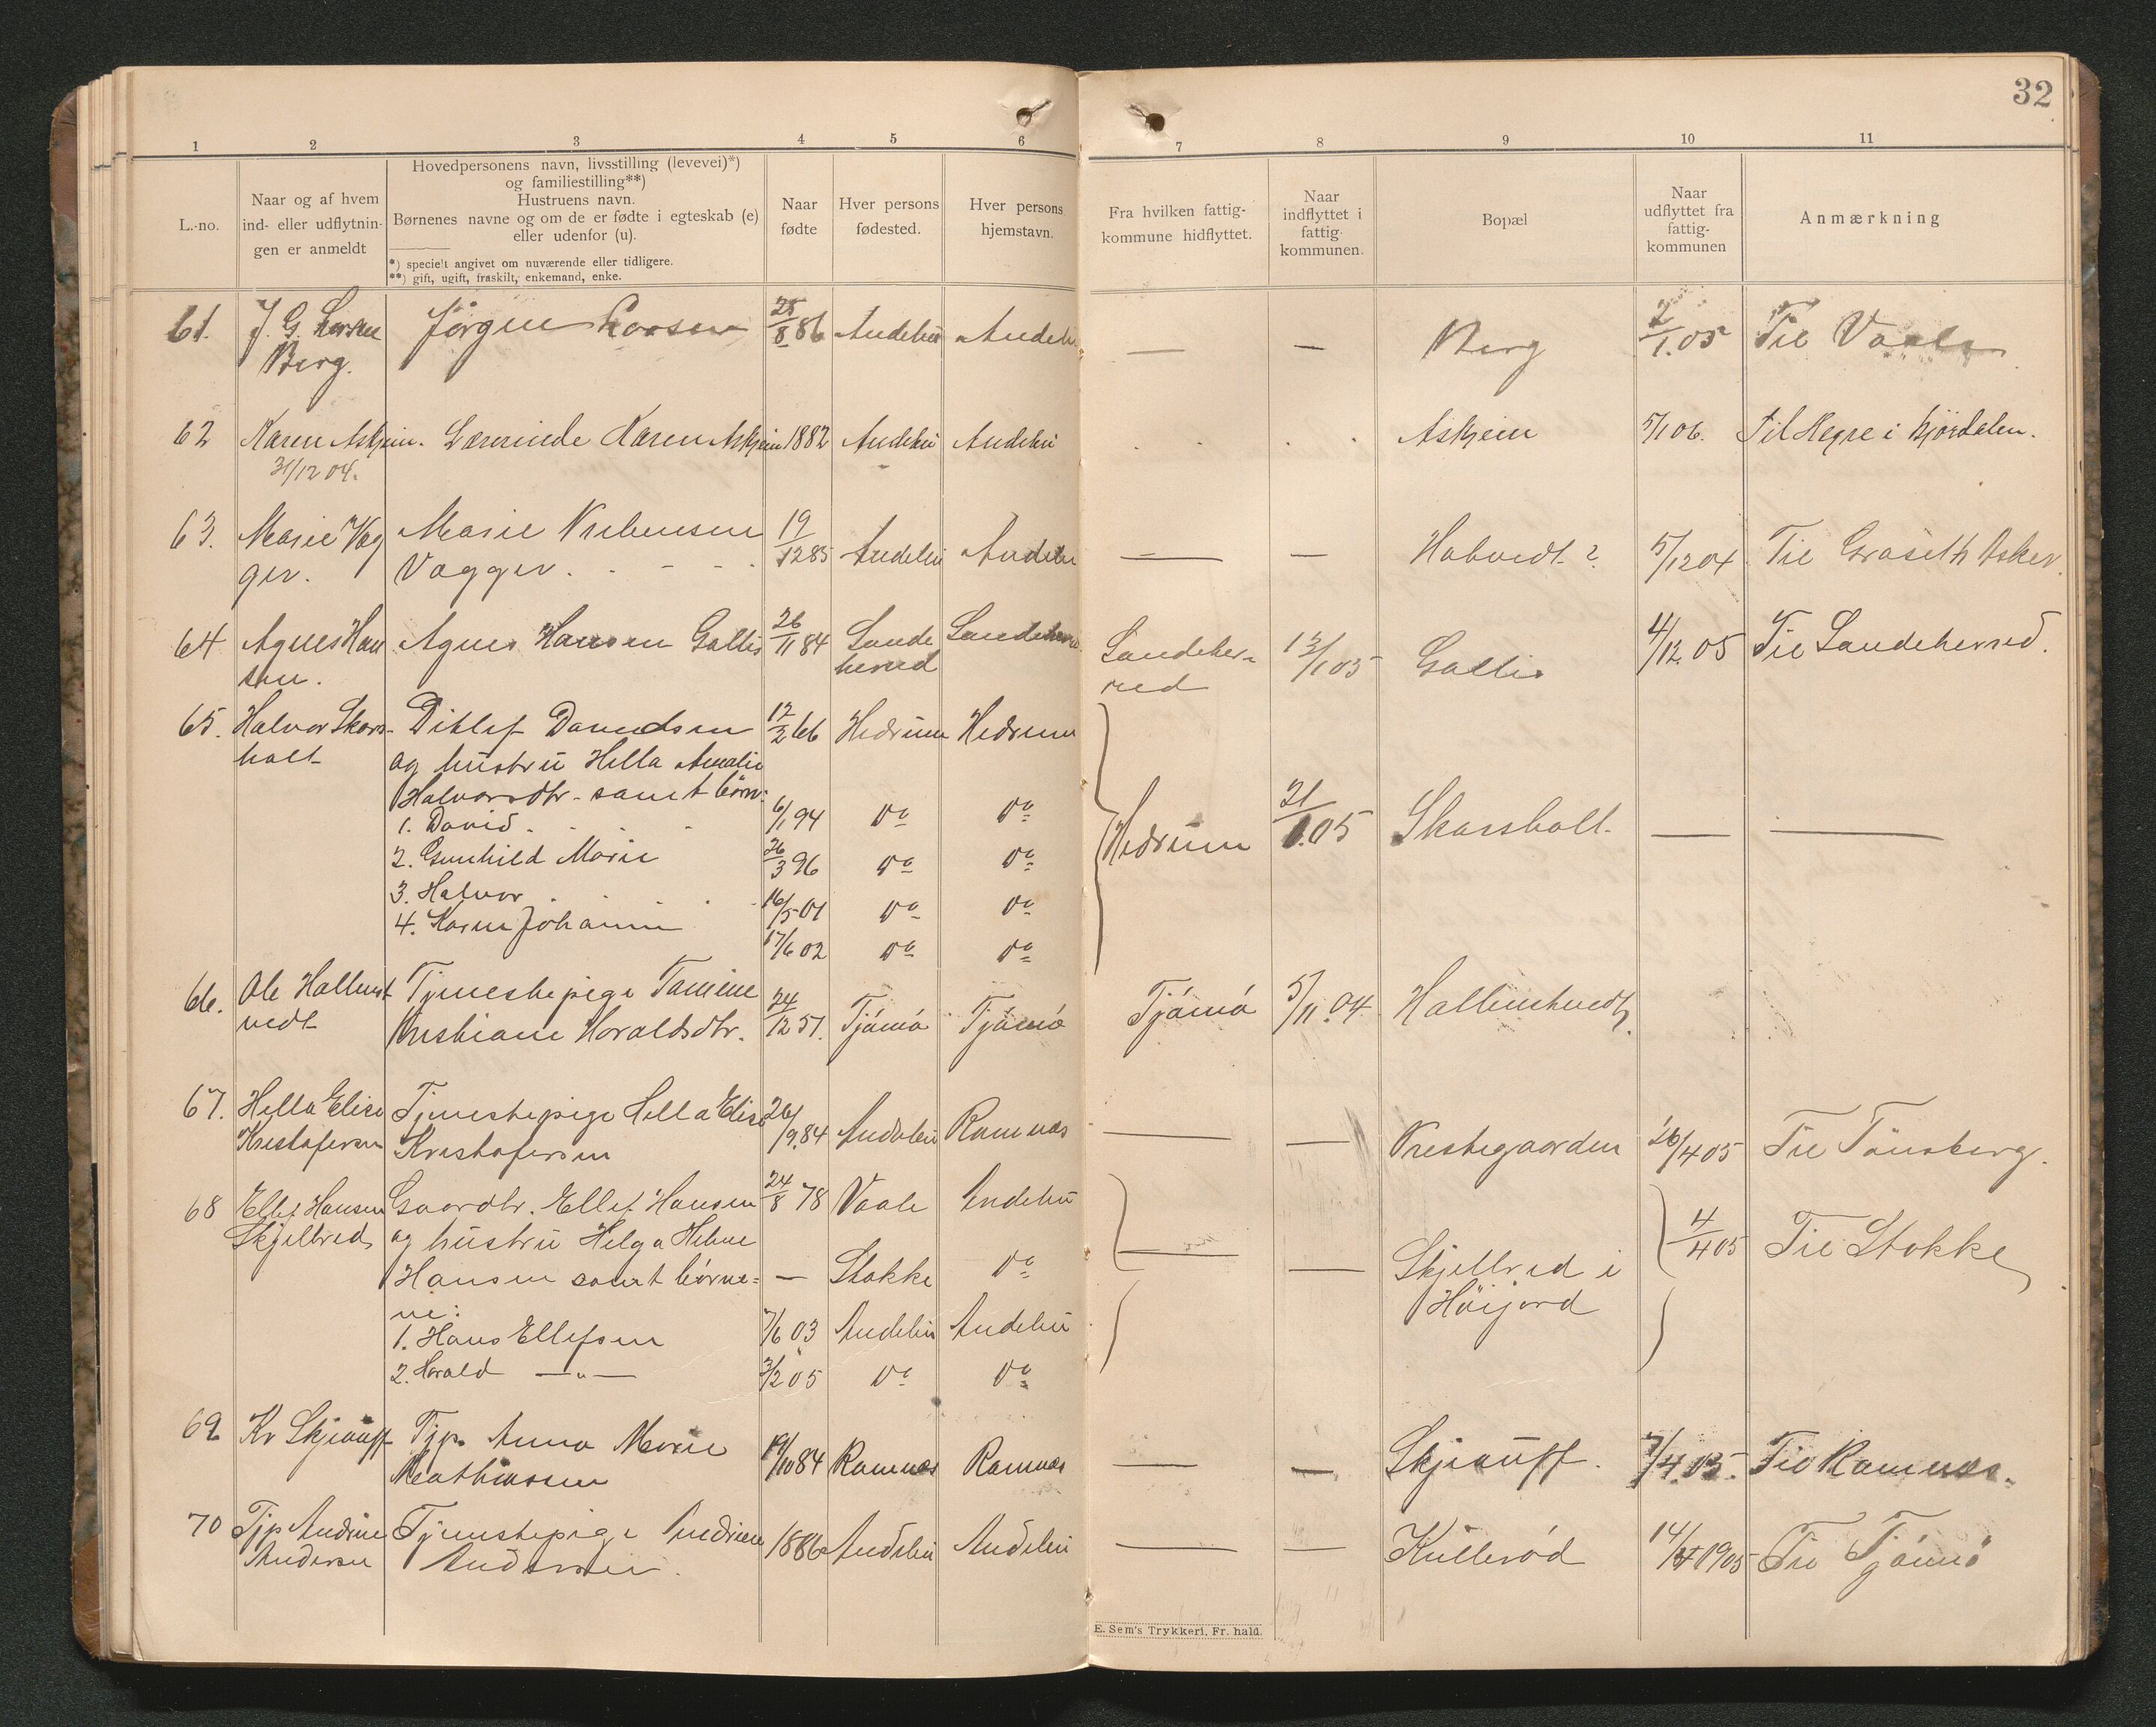 32
1 2 3 4 5 6 7 8 9 10 11
L.-no.
Naar og af hvem
ind- eller udflytnin-
gen er anmeldt
Hovedpersonens navn, livsstilling (levevei)*)
og familiestilling**)
Hustruens navn.
Børnenes navne og om de er fødte i egteskab (e)
eller udenfor (u).
*) specielt angivet om nuværende eller tidligere.
**) gift, ugift, fraskilt, enkemand, enke.
Naar
fødte
Hver persons
fødested.
Hver persons
hjemstavn.
Fra hvilken fattig-
kommune hidflyttet.
Naar
indflyttet i
fattig-
kommunen.
Bopæl
Naar
udflyttet fra
fattig-
kommunen
Anmærkning
61. J. G. Larsen Jörgen Larsen 25/8 86 Andebu Andebu — — Berg 2/1.05 Til Vaale
Berg.
62 Karen Askjem. Lærerinde Karen Askjem 1882 Andebu Andebu Askjem 5/1 06. Til Hegre i Stjördalen.
31/12 04.
63. Marie Vag Marie Nilsensen 19/12 85 Andebu Andebu — — Halvedt? 5/12 04 Til Graseth Asker.
ger. Vagger.
64 Agnes Han Agnes Hansen Gallis 26/11 84 Sande Sandeherred Sandeher- 13/1 05 Gallis 4/12 05 Til Sandeherred.
sen. herred red
65. Halvor Skors- Ditlef Davidsen 12/2 66 Hedrum Hedrum
holt og hustru Hella Amalie
Halvorsdtr. samt börn:
1. David. 6/1 94 Do Do Hedrum 21/1.05 Skorsholt — —
2. Gunhild Marie 26/3 96 Do Do
3. Halvor 16/5 01 Do Do
4. Karen Johanne 17/6 02 Do Do
66. Ole Hallenst Tjenestepige Tamine 24/12 51. Tjömö Tjömö Tjömö 5/11.04. Hallenstvedt
vedt Kristiane Haraldsdtr.
67. Hella Elise Tjenestepige Hella Elise 26/9.84 Andebu Ramnæs — — Prestegaarden 26/4 05 Til Tönsberg.
Kristofersen Kristofersen
68 Ellef Hansen Gaardbr. Ellef Hansen 24/8 78 Vaale Andebu
Skjelbred og hustru Helga Helene — — Skjelbred i 4/4 05 Til Stokke
Hansen samt börne- — Stokke Do Höijord
ne:
1. Hans Ellefsen 7/6 03 Andebu Andebu
2. Harald —"— 3/2 05 Do Do
69 Kr Skjauff Tjp. Anna Marie 19/10 84 Ramnæs Ramnæs — — Skjauff. 7/4.05. Til Ramnæs.
Mathiassen
70 Tjp Andrine Tjenestepige Andrine 1886 Andebu Andebu — — Kullerød 14/4 1905 Til Tjömö
Andersen Andersen.
E. Sem's Trykkeri, Fr. hald.